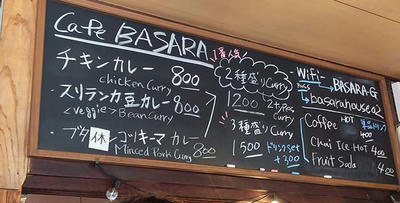 Cafe BASARA
チキンカレー 800
chicken Curry
・スリランカ豆カレー 800
<Veggie> Bean Curry
・ブタ 休 コツキーマ カレー
Minced Pork Curry 800
1番人気
2種盛りCurry
1200
3種盛り
Curry
1500 ドリンクset
+300
- Wifi -
BASARA-G
pass basarahouse
Coffee HOT
400
Chai Ice・Hot 400
Fruit Soda 400